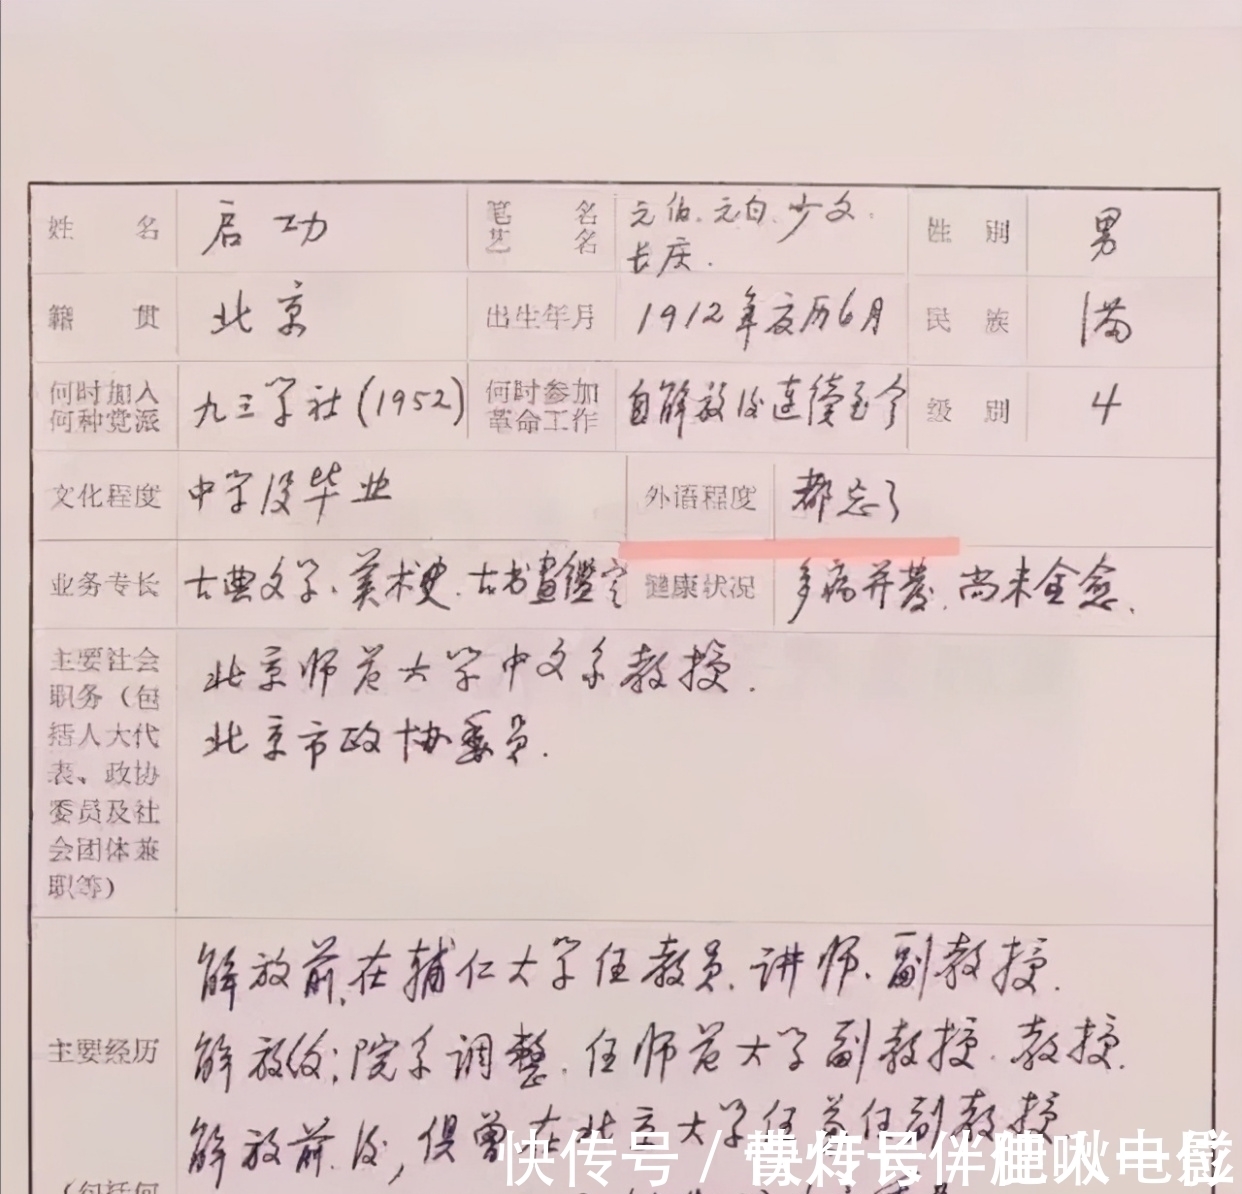 姓名 启功 笔名 艺名 元伯、元白、少文、长庆. 性别 男
籍贯 北京 出生年月 1912年农历6月 民族 满
何时加入何种党派 九三学社(1952) 何时参加革命工作 自解放后连续至今 级别 4
文化程度 中学没毕业 外语程度 都忘了
业务专长 古典文学、美术史、古书画鑑定 健康状况 多病并发,尚未全愈.
主要社会
职务（包
括人大代
表、政协
委员及社
会团体兼
职等）
北京师范大学中文系教授.
北京市政协委员.
主要经历
解放前,在辅仁大学任教员、讲师、副教授.
解放后;院系调整,任师范大学副教授、教授.
解放前、后,俱曾在北京大学任兼任副教授
（包括何
快传号 /